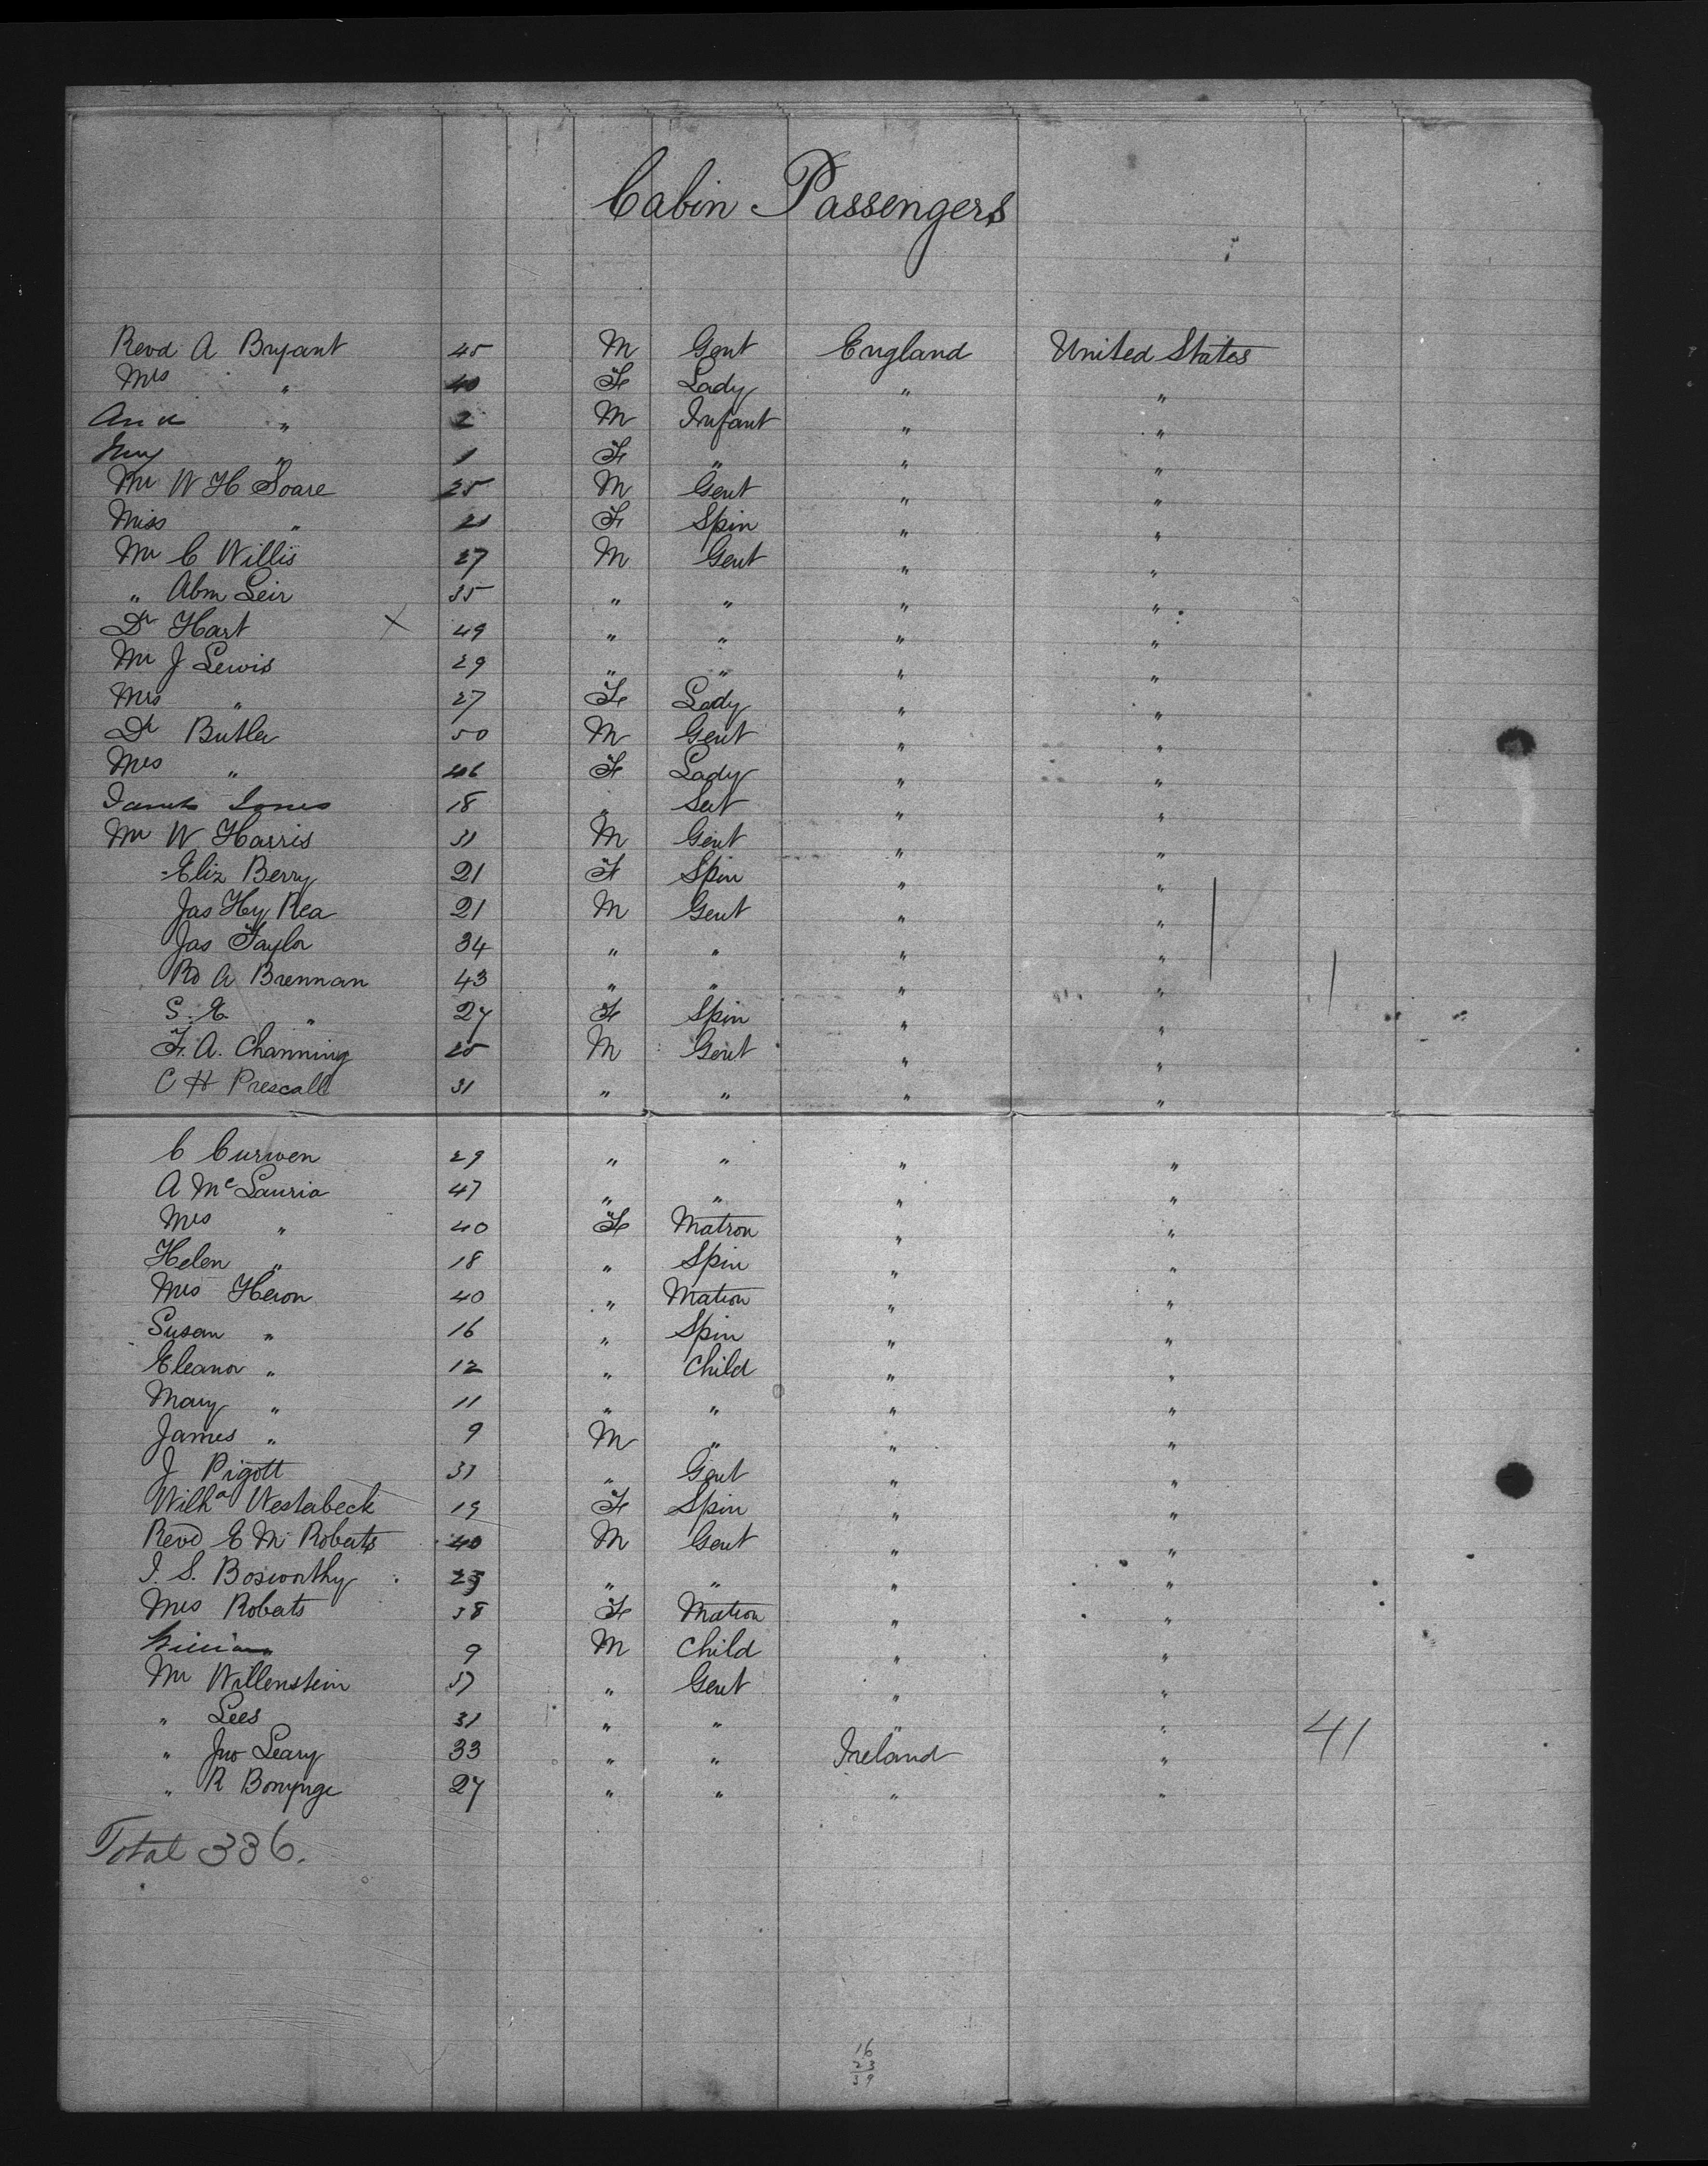 Cabin Passengers
Revd A Bryant 45 M Gent England United States
Mrs " 40 Fe Lady " "
" 2 M Infant " "
" 1 Fe " " "
Mr W H Soare 25 M Gent " "
Miss " 21 Fe Spin " "
Mr C Willis 27 M Gent " "
" Abm Leir 35 " " " "
Dr Hart X 49 " " " "
Mr J Lewis 29 " " " "
Mrs " 27 Fe Lady " "
Dr Butler 50 M Gent " "
Mrs " 46 Fe Lady " "
Jones 18 " " "
Mr W Harris 31 M Gent " "
Eliz Berry 21 Fe Spin " "
Jas Hy Rea 21 M Gent " "
Jas Taylor 34 " " " "
Ro A Brennan 43 " " " "
S. E. " 27 Fe Spin " "
F. A. Channing 25 M Gent " "
C H Prescall 31 " " " "
C Curwen 29 " " " "
A McLauria 47 " " " "
Mrs " 40 Fe Matron " "
Helen " 18 " Spin " "
Mrs Heron 40 " Matron " "
Susan " 16 " Spin " "
Eleanor " 12 " Child " "
Mary " 11 " " " "
James " 9 M " " "
J Pigott 31 " Gent " "
Wilha Westerbeck 19 Fe Spin " "
Revd E M Roberts 40 M Gent " "
J. S. Bosworthy " " " "
Mrs Roberts 38 Fe Matron " "
9 M Child " "
Mr Wallenstein 37 " Gent " "
" Lees 31 " " " " 41
" Jno Leary 33 " " Ireland "
" R Bonynge 27 " " " "
Total 336.
16
23
39